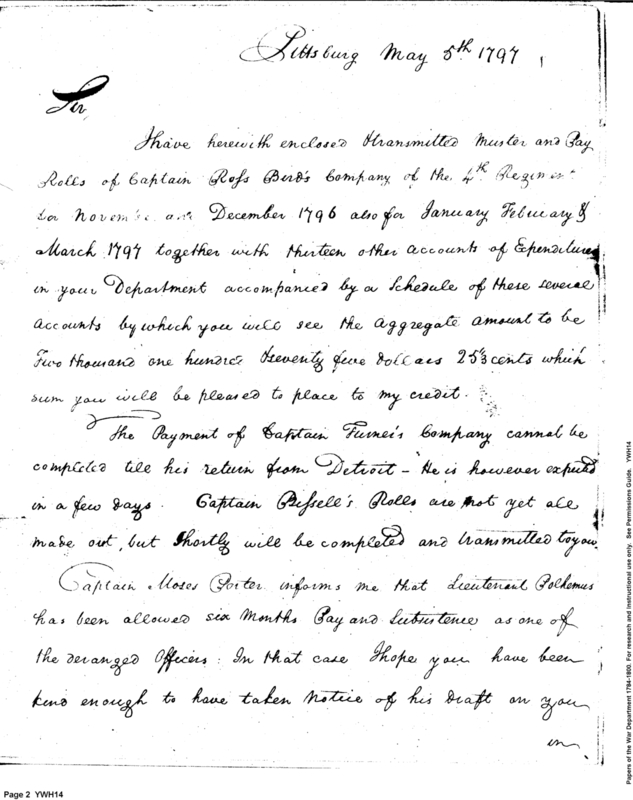 Pittsburg May 5th 1797
Sir
I have herewith enclosed & transmitted Muster and Pay
Rolls of Captain Ross Bird's Company of the 4th Regiment
for November and December 1796 also for January February &
March 1797 together with thirteen other accounts of Expenditures
in your Department accompanied by a Schedule of these several
accounts by which you will see the aggregate amount to be
Two thousand one hundred & seventy five dollars 25⅓ cents which
sum you will be pleased to place to my credit.
The Payment of Captain Turner's Company cannot be
completed till his return from Detroit – He is however expected
in a few days. Captain Bissell's Rolls are not yet all
made out, but shortly will be completed and transmitted to you.
Captain Moses Porter informs me that Lieutenant Polhemus
has been allowed six Months Pay and Subsistence as one of
the deranged Officers: In that case I hope you have been
kind enough to have taken Notice of his draft on you
in
Page 2 YWH14
Papers of the War Department 1784-1800. For research and instructional use only. See Permissions Guide. YWH14